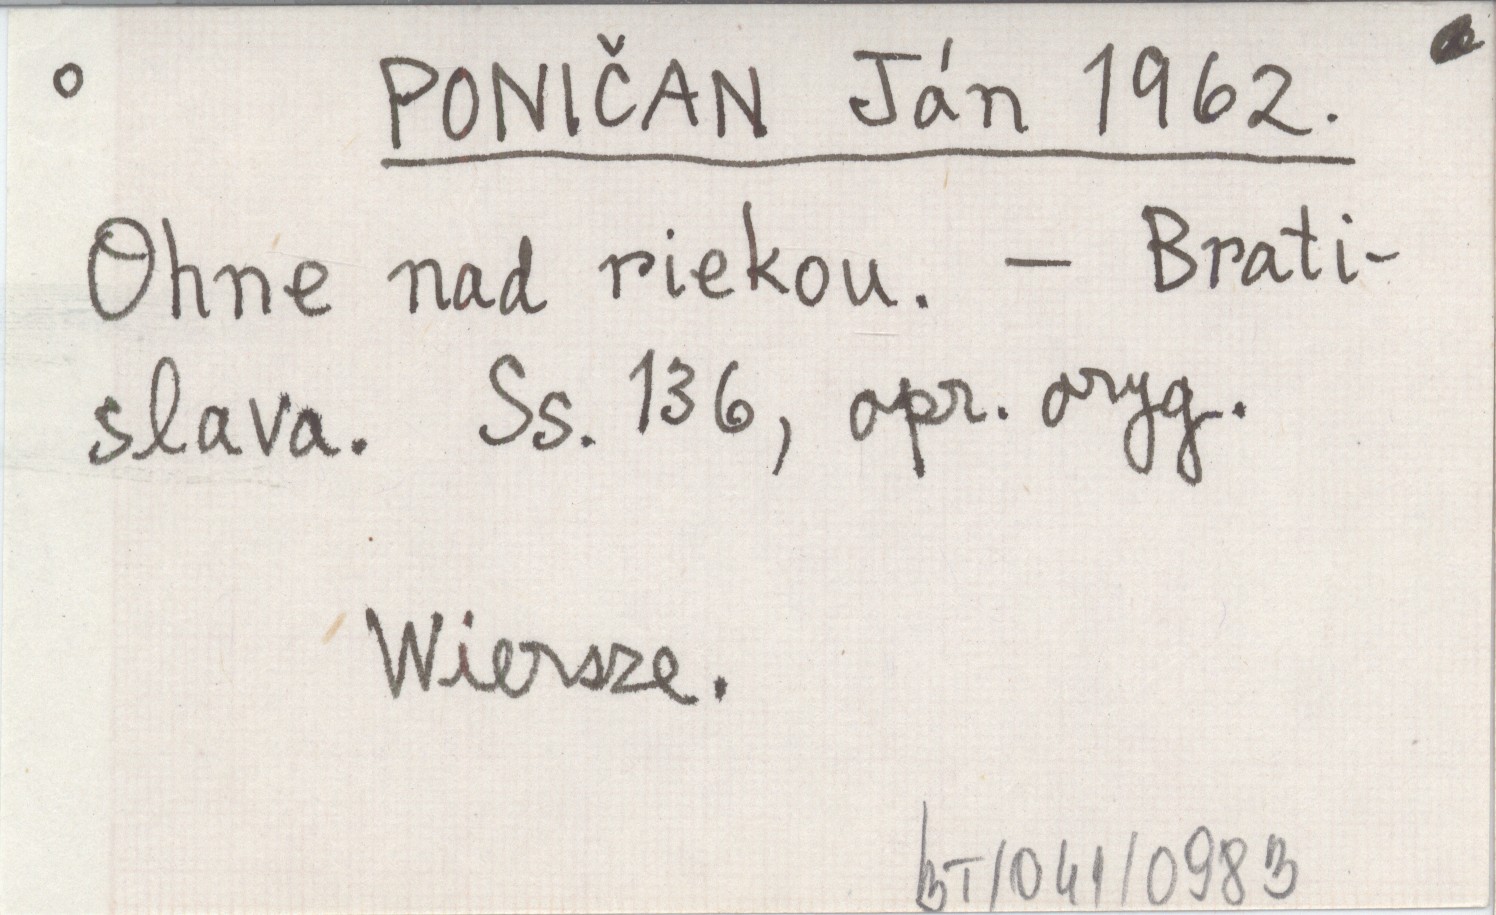 PONIČAN Ján 1962.
Ohne nad riekou. – Brati-
slava. Ss. 136, opr. oryg.
Wiersze.
BT/041/0983